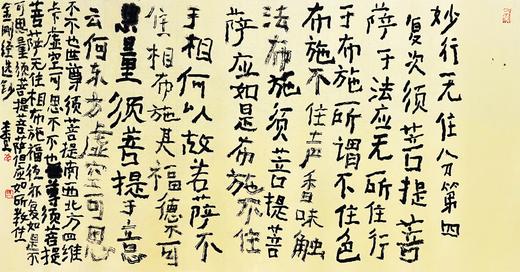 妙行无住分第四
复次须菩提菩
萨于法应无所住行
于布施所谓不住色
布施不住声香味触
法布施须菩提菩
萨应如是布施不住
于相何以故若菩萨不
住相布施其福德不可
思量须菩提于意
云何东方虚空可思
不不也世尊须菩提南西北方四维
上下虚空可思不不也世尊须菩提
菩萨无住相布施福德亦复如是不
可思量须菩提菩萨但应如所教住
金刚经选钞